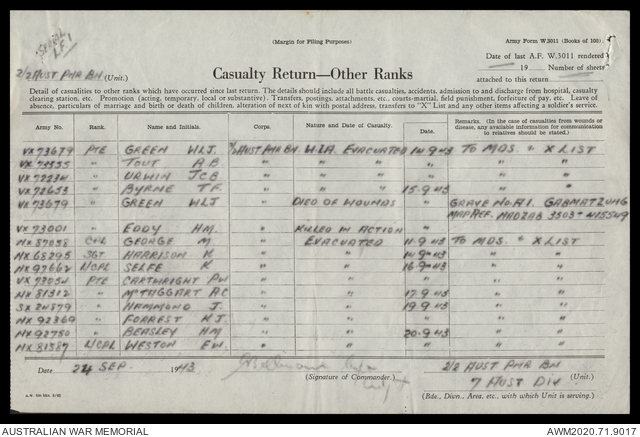 (Margin for Filing Purposes)
Army Form W.3011 (Books of 100)
2/2 AUST PNR BN (Unit.)
Date of last A.F. W.3011 rendered
19 Number of sheets
attached to this return
Casualty Return—Other Ranks
Detail of casualties to other ranks which have occurred since last return. The details should include all battle casualties, accidents, admission to and discharge from hospital, casualty
clearing station, etc. Promotion (acting, temporary, local or substantive). Transfers, postings, attachments, etc., courts-martial, field punishment, forfeiture of pay, etc. Leave of
absence, particulars of marriage and birth or death of children, alteration of next of kin with postal address, transfers to "X" List and any other items affecting a soldier's service.
Army No. Rank. Name and Initials. Corps. Nature and Date of Casualty. Date. Remarks. (In the case of casualties from wounds or disease, any available information for communication to relatives should be stated.)
VX73679 PTE GREEN W.L.J. 2/2 AUST PNR BN W.I.A. EVACUATED 14-9-43 TO MDS & X LIST
" TOUT A B " " " " "
" URWIN J.C.B " " " " "
VX72653 " BYRNE T.F. " " 15.9.43 " "
VX73679 " GREEN WLJ " DIED OF WOUNDS " GRAVE No. A1. GABMATZUNG
MAP REF. MADZAB 3503 - 415549
VX73001 " EDDY HM. " KILLED IN ACTION "
NX87058 CPL GEORGE M " EVACUATED 11-9-43 TO MDS. & X LIST
NX68295 SGT HARRISON K " " 14-9-43 " "
NX97662 L/CPL SELFE K " " 16.9.43 " "
VX73054 PTE CARTWRIGHT P.W " " " " "
NX81312 " McTAGGART A.C " " 17.9.43 " "
SX24579 " HAMMOND J. " " 19.9.43 " "
NX92369 " FORREST K.J. " " " " "
NX92750 " BEASLEY HM " " 20.9.43 " "
NX81387 L/CPL WESTON E.W. " " " " "
Date 24 SEP. 1943
(Signature of Commander.)
2/2 AUST PNR BN
7 AUST DIV. (Unit.)
(Bde., Divn., Area, etc., with which Unit is serving.)
AUSTRALIAN WAR MEMORIAL
AWM2020.71.9017